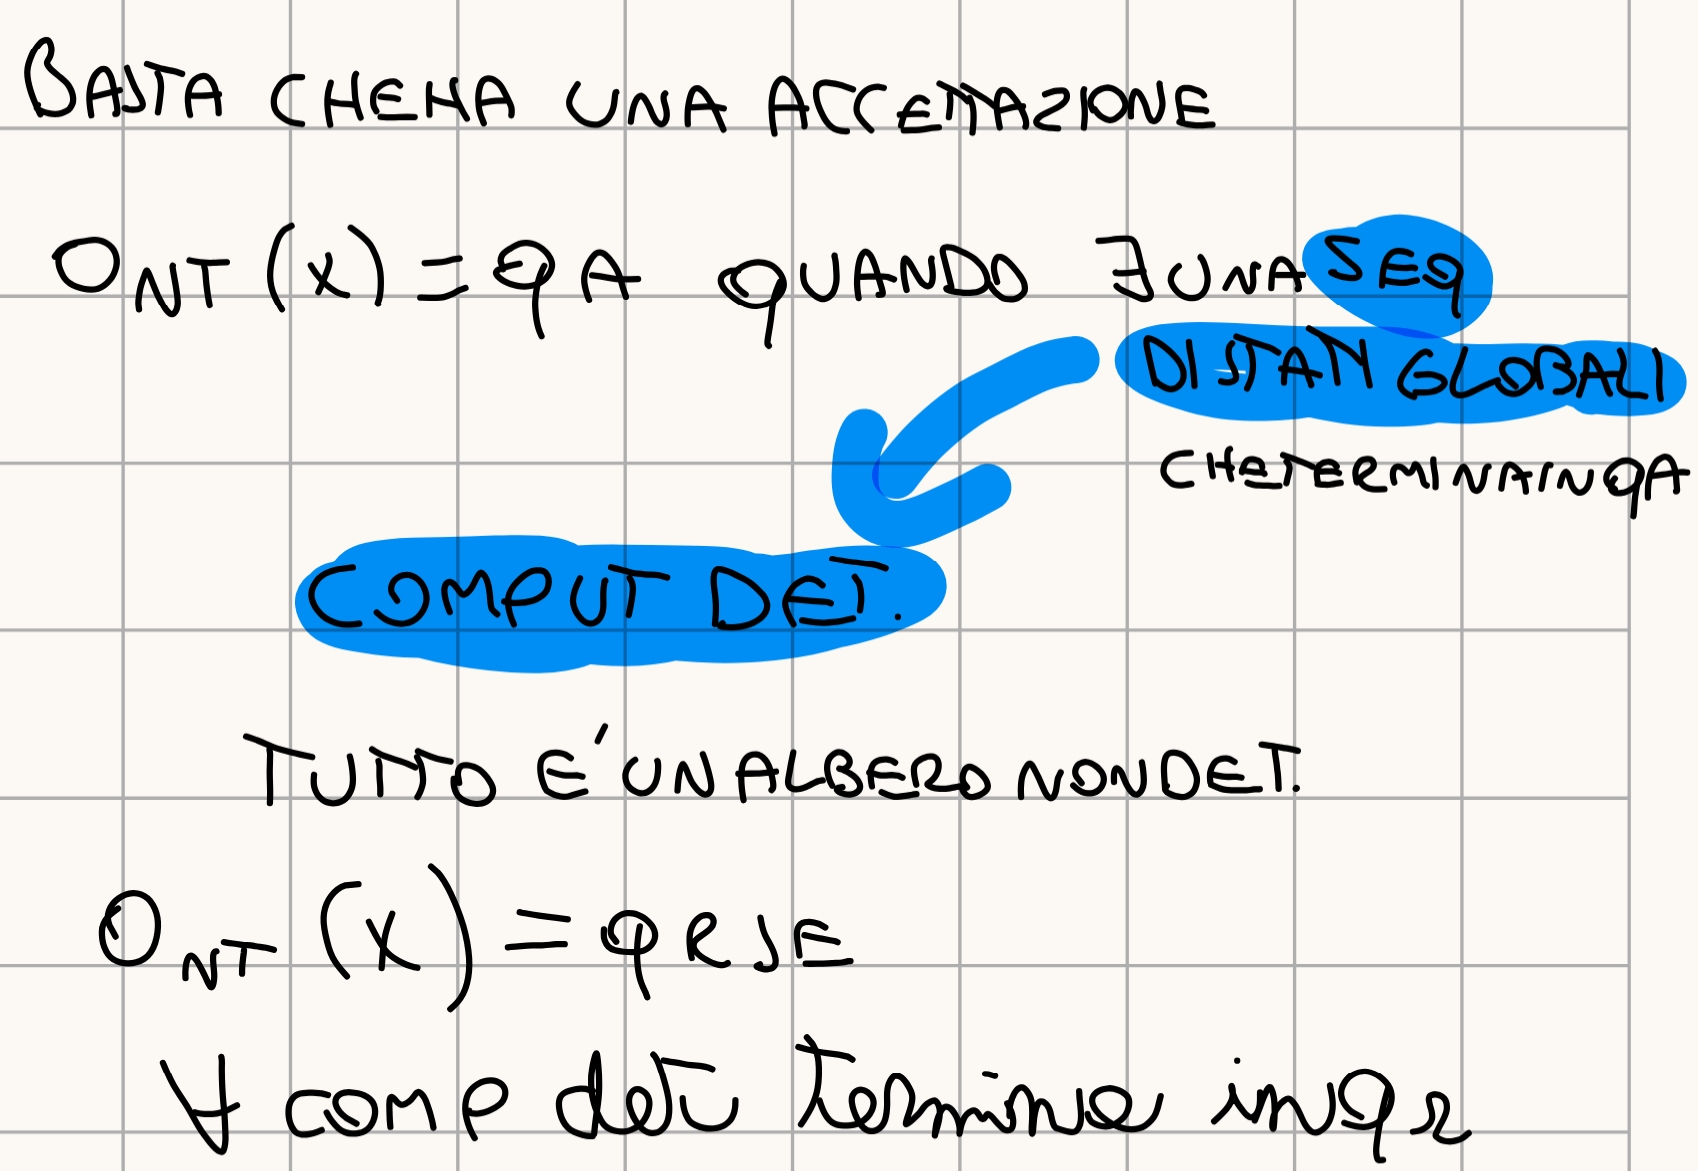 BASTA CHE HA UNA ACCETTAZIONE
O_NT (x) = QA QUANDO ∃ UNA SEQ
DI STATI GLOBALI
CHE TERMINA IN QA
COMPUT DET.
TUTTO E' UN ALBERO NON DET.
O_NT (x) = QR SE
∀ comp det termina in qr